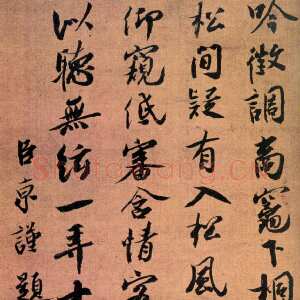 吟徵調商竈下桐
松間疑有入松風
仰窺低審含情客
似聽無絃一弄中
臣京謹題